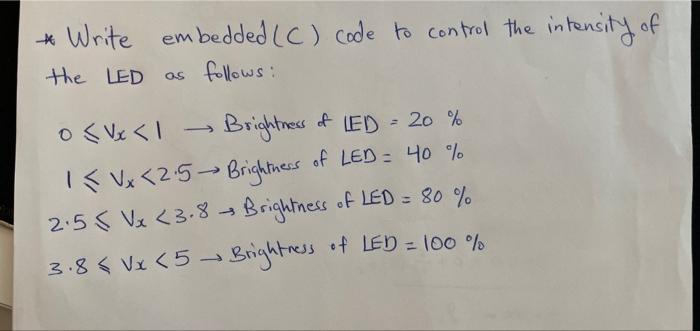 * Write embedded (C) code to control the intensity of
the LED as follows:
0 ≤ Vx < 1 → Brightness of LED = 20 %
1 ≤ Vx < 2.5 → Brightness of LED = 40 %
2.5 ≤ Vx < 3.8 → Brightness of LED = 80 %
3.8 ≤ Vx < 5 → Brightness of LED = 100 %